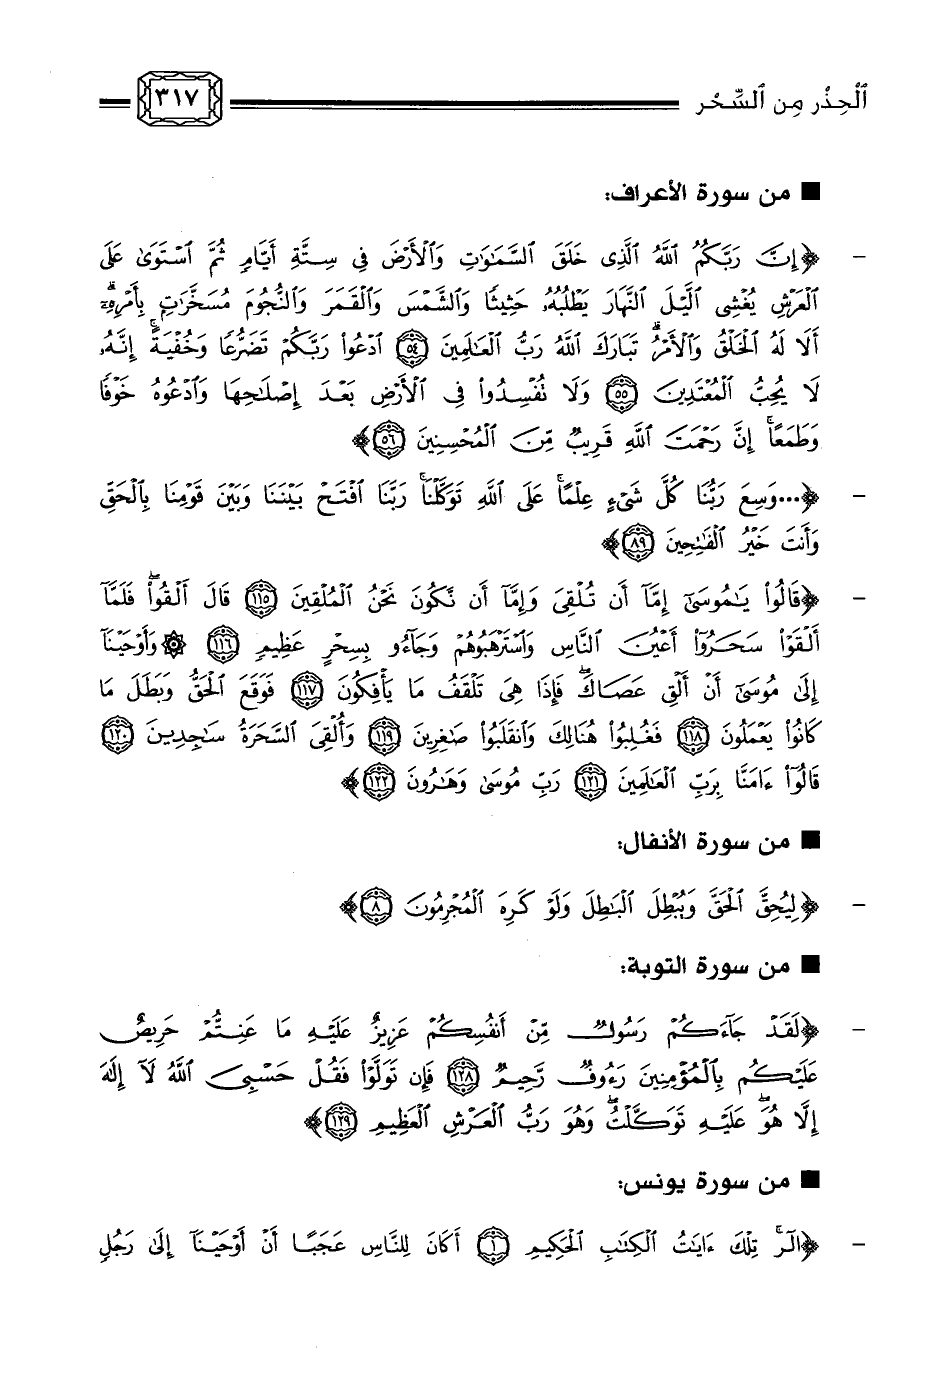 ٱلْحِذْر مِن ٱلسِّحْر ٣١٧
■ من سورة الأعراف:
- ﴿إِنَّ رَبَّكُمُ ٱللَّهُ ٱلَّذِى خَلَقَ ٱلسَّمَٰوَٰتِ وَٱلْأَرْضَ فِى سِتَّةِ أَيَّامٍ ثُمَّ ٱسْتَوَىٰ عَلَى
ٱلْعَرْشِ يُغْشِى ٱلَّيْلَ ٱلنَّهَارَ يَطْلُبُهُۥ حَثِيثًا وَٱلشَّمْسَ وَٱلْقَمَرَ وَٱلنُّجُومَ مُسَخَّرَٰتٍۭ بِأَمْرِهِۦٓ ۗ
أَلَا لَهُ ٱلْخَلْقُ وَٱلْأَمْرُ ۗ تَبَارَكَ ٱللَّهُ رَبُّ ٱلْعَٰلَمِينَ ٥٤ ٱدْعُوا۟ رَبَّكُمْ تَضَرُّعًا وَخُفْيَةً ۚ إِنَّهُۥ
لَا يُحِبُّ ٱلْمُعْتَدِينَ ٥٥ وَلَا تُفْسِدُوا۟ فِى ٱلْأَرْضِ بَعْدَ إِصْلَٰحِهَا وَٱدْعُوهُ خَوْفًا
وَطَمَعًا ۚ إِنَّ رَحْمَتَ ٱللَّهِ قَرِيبٌ مِّنَ ٱلْمُحْسِنِينَ ٥٦﴾
- ﴿...وَسِعَ رَبُّنَا كُلَّ شَىْءٍ عِلْمًا ۚ عَلَى ٱللَّهِ تَوَكَّلْنَا ۚ رَبَّنَا ٱفْتَحْ بَيْنَنَا وَبَيْنَ قَوْمِنَا بِٱلْحَقِّ
وَأَنتَ خَيْرُ ٱلْفَٰتِحِينَ ٨٩﴾
- ﴿قَالُوا۟ يَٰمُوسَىٰٓ إِمَّآ أَن تُلْقِىَ وَإِمَّآ أَن نَّكُونَ نَحْنُ ٱلْمُلْقِينَ ١١٥ قَالَ أَلْقُوا۟ ۖ فَلَمَّآ
أَلْقَوْا۟ سَحَرُوٓا۟ أَعْيُنَ ٱلنَّاسِ وَٱسْتَرْهَبُوهُمْ وَجَآءُو بِسِحْرٍ عَظِيمٍ ١١٦ ۞ وَأَوْحَيْنَآ
إِلَىٰ مُوسَىٰٓ أَنْ أَلْقِ عَصَاكَ ۖ فَإِذَا هِىَ تَلْقَفُ مَا يَأْفِكُونَ ١١٧ فَوَقَعَ ٱلْحَقُّ وَبَطَلَ مَا
كَانُوا۟ يَعْمَلُونَ ١١٨ فَغُلِبُوا۟ هُنَالِكَ وَٱنقَلَبُوا۟ صَٰغِرِينَ ١١٩ وَأُلْقِىَ ٱلسَّحَرَةُ سَٰجِدِينَ ١٢٠
قَالُوٓا۟ ءَامَنَّا بِرَبِّ ٱلْعَٰلَمِينَ ١٢١ رَبِّ مُوسَىٰ وَهَٰرُونَ ١٢٢﴾
■ من سورة الأنفال:
- ﴿لِيُحِقَّ ٱلْحَقَّ وَيُبْطِلَ ٱلْبَٰطِلَ وَلَوْ كَرِهَ ٱلْمُجْرِمُونَ ٨﴾
■ من سورة التوبة:
- ﴿لَقَدْ جَآءَكُمْ رَسُولٌ مِّنْ أَنفُسِكُمْ عَزِيزٌ عَلَيْهِ مَا عَنِتُّمْ حَرِيصٌ
عَلَيْكُم بِٱلْمُؤْمِنِينَ رَءُوفٌ رَّحِيمٌ ١٢٨ فَإِن تَوَلَّوْا۟ فَقُلْ حَسْبِىَ ٱللَّهُ لَآ إِلَٰهَ
إِلَّا هُوَ ۖ عَلَيْهِ تَوَكَّلْتُ ۖ وَهُوَ رَبُّ ٱلْعَرْشِ ٱلْعَظِيمِ ١٢٩﴾
■ من سورة يونس:
- ﴿الٓر ۚ تِلْكَ ءَايَٰتُ ٱلْكِتَٰبِ ٱلْحَكِيمِ ١ أَكَانَ لِلنَّاسِ عَجَبًا أَنْ أَوْحَيْنَآ إِلَىٰ رَجُلٍ